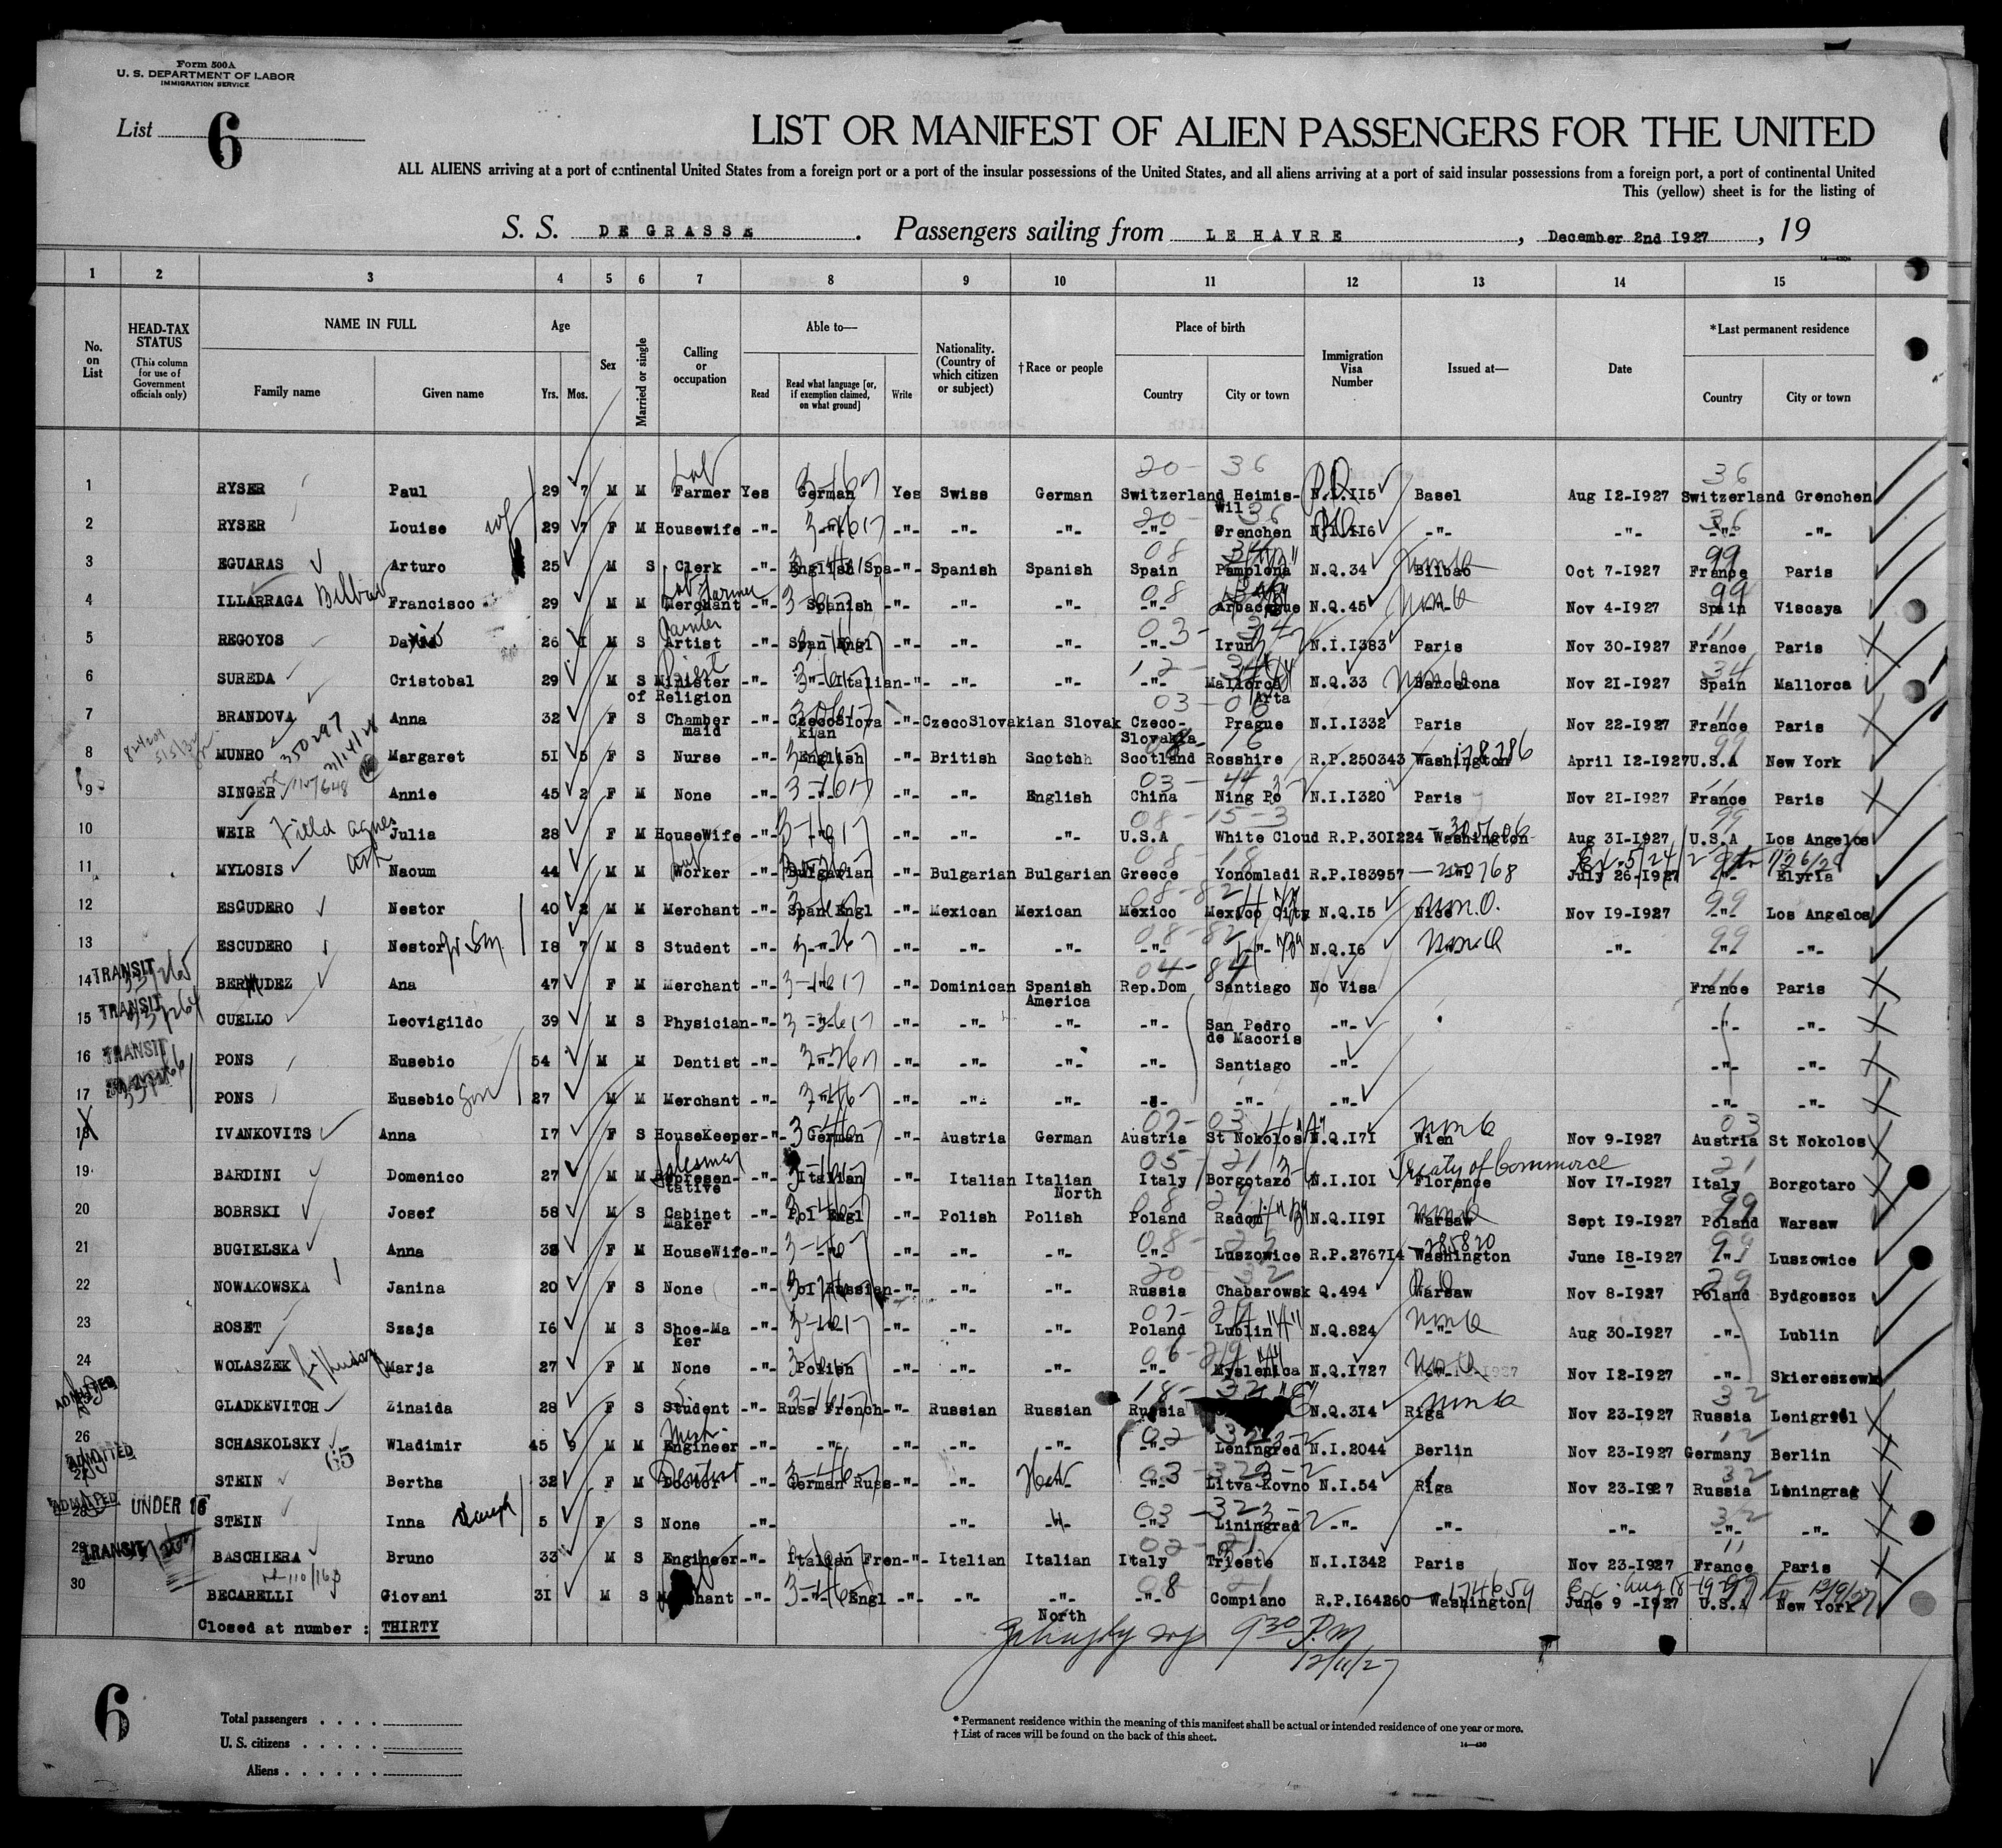 Form 500A
U. S. DEPARTMENT OF LABOR
IMMIGRATION SERVICE
List 6
LIST OR MANIFEST OF ALIEN PASSENGERS FOR THE UNITED
ALL ALIENS arriving at a port of continental United States from a foreign port or a port of the insular possessions of the United States, and all aliens arriving at a port of said insular possessions from a foreign port, a port of continental United
This (yellow) sheet is for the listing of
S. S. DE GRASSE. Passengers sailing from LE HAVRE, December 2nd 1927, 19
1 2 3 4 5 6 7 8 9 10 11 12 13 14 15
No. on List
HEAD-TAX STATUS (This column for use of Government officials only)
NAME IN FULL Family name Given name
Age Yrs. Mos.
Sex
Married or single
Calling or occupation
Able to— Read Read what language [or, if exemption claimed, on what ground] Write
Nationality. (Country of which citizen or subject)
†Race or people
Place of birth Country City or town
Immigration Visa Number
Issued at—
Date
*Last permanent residence Country City or town
1 RYSER Paul 29 7 M M Farmer Yes German Yes Swiss German Switzerland Heimis-Wil N.I.115 Basel Aug 12-1927 Switzerland Grenchen
2 RYSER Louise wf 29 7 F M Housewife -"- -"- -"- -"- -"- -"- Grenchen N.I.116 -"- -"- -"- -"-
3 EGUARAS Arturo 25 M S Clerk -"- English Spa -"- Spanish Spanish Spain Pamplona N.Q.34 Bilbao Oct 7-1927 France Paris
4 ILLARRAGA Francisco 29 M M Merchant -"- Spanish -"- -"- -"- -"- N.Q.45 -"- Nov 4-1927 Spain Viscaya
5 REGOYOS David 26 1 M S Artist Painter -"- Span Engl -"- -"- -"- -"- Irun N.I.1383 Paris Nov 30-1927 France Paris
6 SUREDA Cristobal 29 M S Minister of Religion Priest -"- -"- Italian -"- -"- -"- -"- Mallorca Arta N.Q.33 Barcelona Nov 21-1927 Spain Mallorca
7 BRANDOVA Anna 32 F S Chamber maid -"- CzecoSlovakian -"- CzecoSlovakian Slovak Czeco-Slovakia Prague N.I.1332 Paris Nov 22-1927 France Paris
8 MUNRO Margaret 51 5 F S Nurse -"- English -"- British Scotch Scotland Rosshire R.P.250343 Washington 178786 April 12-1927 U.S.A New York
9 SINGER Annie 45 2 F M None -"- -"- -"- -"- English China Ning Po N.I.1320 Paris Nov 21-1927 France Paris
10 WEIR Field Agnes Julia 28 F M HouseWife -"- -"- -"- -"- -"- U.S.A White Cloud R.P.301224 Washington Aug 31-1927 U.S.A Los Angelos
11 MYLOSIS Naoum 44 M M Worker -"- Bulgarian -"- Bulgarian Bulgarian Greece Yonomladi R.P.183957 -"- 200768 July 26-1927 -"- Elyria
12 ESGUDERO Nestor 40 2 M M Merchant -"- Span Engl -"- Mexican Mexican Mexico Mexico City N.Q.15 Nice Nov 19-1927 -"- Los Angelos
13 ESCUDERO Nestor jr Son 18 7 M S Student -"- -"- -"- -"- -"- -"- -"- N.Q.16 -"- -"- -"-
14 TRANSIT BERMUDEZ Ana 47 F M Merchant -"- -"- -"- Dominican Spanish America Rep.Dom Santiago No Visa France Paris
15 TRANSIT CUELLO Leovigildo 39 M S Physician -"- -"- -"- -"- -"- -"- San Pedro de Macoris -"- -"- -"-
16 TRANSIT PONS Eusebio 54 M M Dentist -"- -"- -"- -"- -"- -"- Santiago -"- -"- -"-
17 PONS Eusebio Son 27 M M Merchant -"- -"- -"- -"- -"- -"- -"- -"- -"- -"-
18 IVANKOVITS Anna 17 F S HouseKeeper -"- German -"- Austria German Austria St Nokolos N.Q.171 Wien Nov 9-1927 Austria St Nokolos
19 BARDINI Domenico 27 M M Representative Salesman -"- Italian -"- Italian Italian North Italy Borgotaro N.I.101 Florence Treaty of Commerce Nov 17-1927 Italy Borgotaro
20 BOBRSKI Josef 58 M S Cabinet Maker -"- Pol Engl -"- Polish Polish Poland Radom N.Q.1191 Warsaw Sept 19-1927 Poland Warsaw
21 BUGIELSKA Anna 38 F M HouseWife -"- -"- -"- -"- -"- -"- Luszowice R.P.276714 Washington 285820 June 18-1927 -"- Luszowice
22 NOWAKOWSKA Janina 20 F S None Pol Russian -"- -"- -"- Russia Chabarowsk Q.494 Warsaw Nov 8-1927 Poland Bydgoszcz
23 ROSET Szaja 16 M S Shoe-Maker -"- -"- -"- -"- -"- Poland Lublin N.Q.824 -"- Aug 30-1927 -"- Lublin
24 WOLASZEK Marja 27 F M None -"- Polish -"- -"- -"- -"- Myslenica N.Q.1727 -"- Nov 12-1927 -"- Skiereszewk
ADMITTED GLADKEVITCH Zinaida 28 F S Student -"- Russ French -"- Russian Russian Russia N.Q.314 Riga Nov 23-1927 Russia Lenigrad
26 ADMITTED SCHASKOLSKY Wladimir 45 9 M M Engineer -"- -"- -"- -"- -"- -"- Leningred N.I.2044 Berlin Nov 23-1927 Germany Berlin
STEIN Bertha 32 F M Doctor Dentist -"- German Russ -"- -"- Heb -"- Litva-Kovno N.I.54 Riga Nov 23-1927 Russia Leningrag
28 ADMITTED UNDER 16 STEIN Inna Daugh 5 F S None -"- -"- -"- -"- Liningrad -"- -"- -"- -"- -"-
29 TRANSIT BASCHIERA Bruno 33 M S Engineer -"- Italian Fren -"- Italian Italian Italy Trieste N.I.1342 Paris Nov 23-1927 France Paris
30 BECARELLI Giovani 31 M S Merchant -"- -"- Engl -"- -"- -"- North -"- Compiano R.P.164260 Washington 174659 June 9 -1927 U.S.A New York
Closed at number : THIRTY
9 30 P.M
12/11/27
6
Total passengers
U. S. citizens
Aliens
* Permanent residence within the meaning of this manifest shall be actual or intended residence of one year or more.
† List of races will be found on the back of this sheet.
14—430